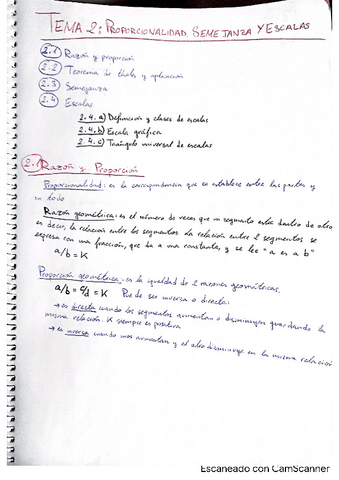 TEMA 2: PROPORCIONALIDAD, SEMEJANZA Y ESCALAS
2.1 Razón y proporción
2.2 Teorema de thales y aplicación
2.3 Semejanza
2.4 Escalas
2.4.a) Definición y clases de escalas
2.4.b) Escala gráfica
2.4.c) Triángulo universal de escalas
2.1 Razón y Proporción
Proporcionalidad: es la correspondencia que se establece entre las partes y
un todo
Razón geométrica: es el número de veces que un segmento está dentro de otro,
es decir, la relación entre los segmentos. La relación entre 2 segmentos se
expresa con una fracción, que da a una constante, y se lee "a es a b"
a/b = K
Proporción geométrica: es la igualdad de 2 razones geométricas.
a/b = c/d = K Puede ser inversa o directa:
→ es directa cuando los segmentos aumentan o disminuyen guardando la
misma relación. K siempre es positiva
→ es inversa cuando unos aumentan y el otro disminuye en la misma relación
Escaneado con CamScanner